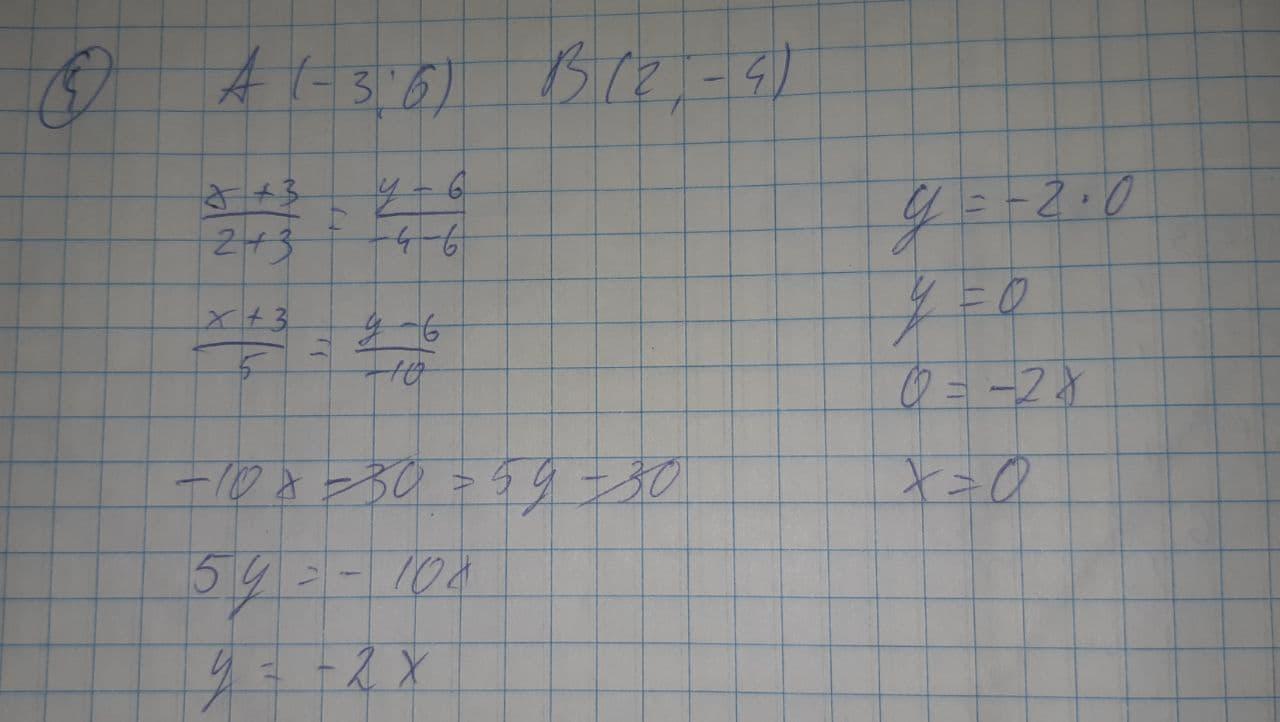 ④ A (-3; 6) B (2; -4)
(x+3)/(2+3) = (y-6)/(-4-6)
(x+3)/5 = (y-6)/(-10)
-10x -30 = 5y -30
5y = -10x
y = -2x
y = -2·0
y = 0
0 = -2x
x = 0